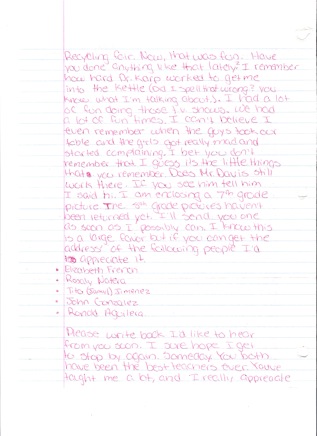 Recycling fair. Now, that was fun. Have
you done anything like that lately? I remember
how hard Dr. Karp worked to get me
into the Kettle (did I spell that wrong? you
know what I'm talking about). I had a lot
of fun doing those T.V. shows. We had
a lot of fun times. I can't believe I
even remember when the guys took our
table and the girls got really mad and
started complaining. I bet you don't
remember that. I guess it's the little things
that you remember. Does Mr. Davis still
work there. If you see him tell him
I said hi. I am enclosing a 7th grade
picture. The 8th grade pictures haven't
been returned yet. I'll send you one
as soon as I possibly can. I know this
is a large favor but if you can get the
address of the following people I'd
appreciate it.
• Elizabeth French
• Randy
• Jimenez
• John Gonzalez
• Ronald Aguilera
Please write back I'd like to hear
from you soon. I sure hope I get
to stop by again. Someday. You both
have been the best teachers ever. You've
taught me a lot, and I really appreciate